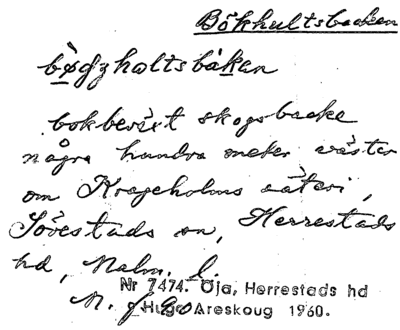 Bökhultsbacken
bøgzholtsbakan
bokbevüxt skogsbacke
några hundra meter väster
om Krageholms säteri,
Sövestads sn, Herrestads
hd, Malm. l.
Nr 7474. Öja, Herrestads hd
Hugo Areskoug 1960.